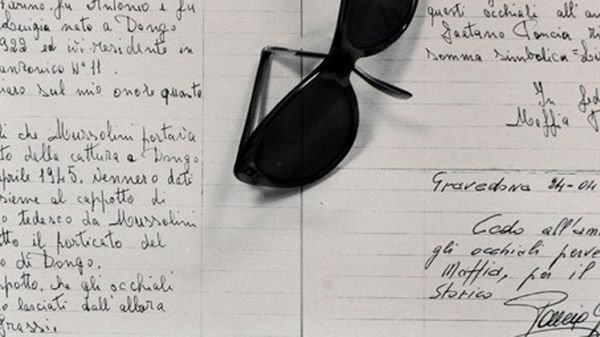 Antonio e fu
Luigia nato a Dongo
1922 ed ivi residente in
N° 11.
sul mio onore quanto
che Mussolini portava
della cattura a Dongo
aprile 1945. Vennero dati
al cappotto di
tedesco da Mussolini
il porticato del
di Dongo.
che gli occhiali
lasciati dall'allora
Grassi.
questi occhiali all'am
Gaetano Poncia
somma simbolica
In fed
Maffia
Gravedona 24-04
Cedo all'am
gli occhiali perve
Maffia, per il
storico